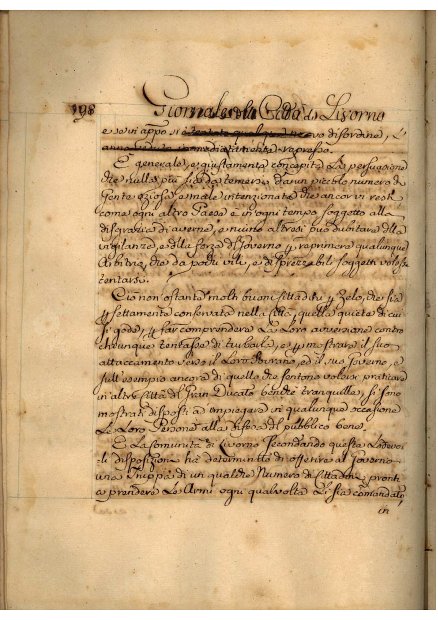 198 Giornale della Città di Livorno
e se vi appo
vo disordine, è
represso.
È generale, e giustamente concepita La persuasione
che nulla più sia da temersi da un piccolo numero di
Gente oziosa e male intenzionata che ancor vi resti
come ogni altro Paese è in ogni tempo soggetto alla
disgrazia di averne, e niuno altresì può dubitare della
vigilanza, e della forza del Governo reprimere qualunque
Arbitrio, che da pochi vili, e disprezzabili soggetti volesse
tentarsi.
Ciò non ostante molti buoni Cittadini zelo, che sia
fettamente conservata nella Città, quella quiete di cui
si gode, far comprendere La Loro avversione contro
chiunque tentasse di turbarla, e mostrare il suo
attaccamento verso il Loro Sovrano, ed il suo Governo, e
sull'esempio ancora di quello che sentono volersi praticare
in altre Città del Gran Ducato benchè tranquille, si sono
mostrati disposti a impiegare in qualunque occasione
Le Loro Persone alla difesa del pubblico bene.
E La Comunità di Livorno Secondando queste Lodevo
li disposizioni ha determinato di offerire al Governo
una Truppa di un qualche Numero di Cittadini pronti
a prendere Le Armi ogni qualvolta Li sia comandato,
in